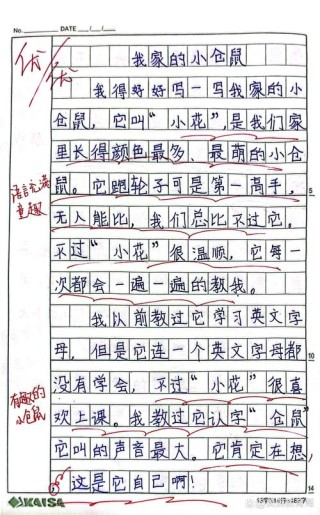 No.
DATE / /
优/优
我家的小仓鼠
我得好好写一写我家的小
仓鼠，它叫“小花”，是我们家
里长得颜色最多、最萌的小仓
鼠。它跑轮子可是第一高手，
无人能比，我们总比不过它。
不过“小花”很温顺，它每一
次都会一遍一遍的教我。
我以前教过它学习英文字
母，但是它连一个英文字母都
没有学会，不过“小花”很喜
欢上课。我教过它认字“仓鼠”
它叫的声音最大。它肯定在想，
这是它自己啊！
语言充满
童趣
有趣的
小仓鼠
5
10
14
KAISA